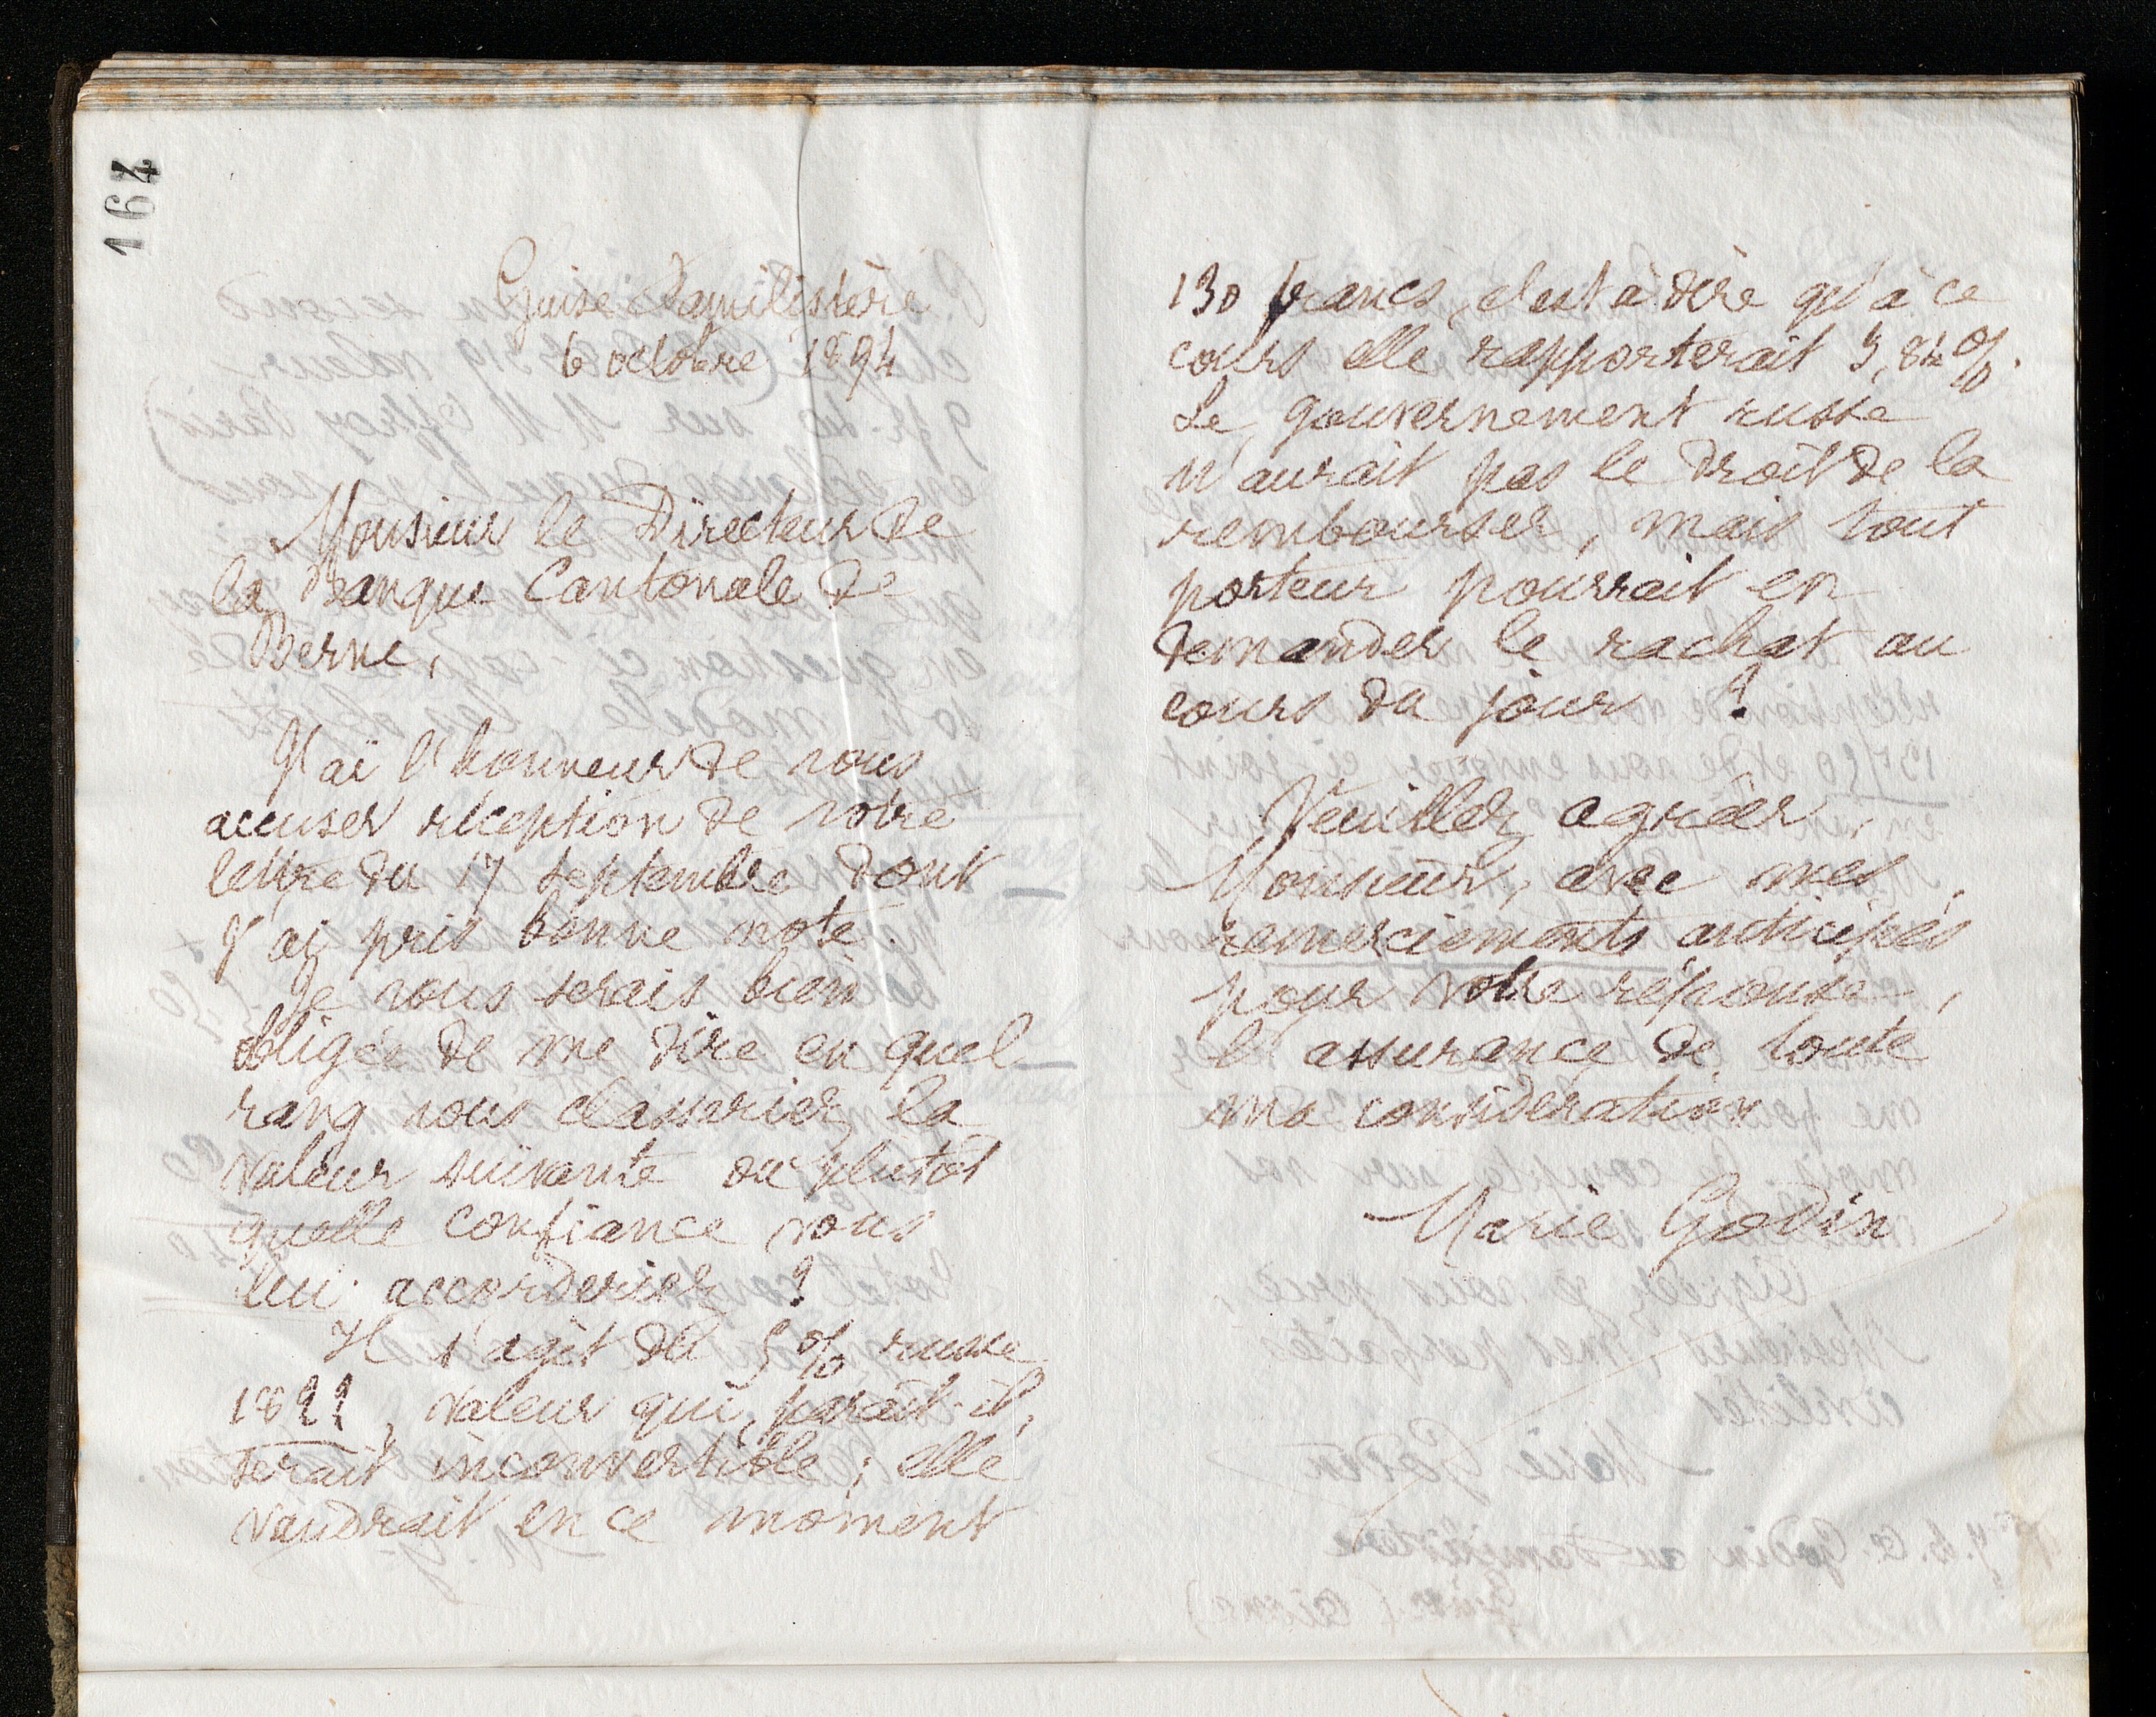 164
Guise Familistère
6 octobre 1894
Monsieur le Directeur de
la Banque Cantonale de
Berne,
J'ai l'honneur de vous
accuser réception de votre
lettre du 17 septembre dont
j'ai pris bonne note.
Je vous serais bien
obligée de me dire en quel
rang vous classeriez la
valeur suivante ou plutôt
quelle confiance vous
lui accorderiez ?
Il s'agit du 5% russe
1822, valeur qui, paraît-il,
serait inconvertible ; elle
vaudrait en ce moment
130 francs, c'est à dire qu'à ce
cours elle rapporterait 3,84 %.
Le gouvernement russe
n'aurait pas le droit de la
rembourser, mais tout
porteur pourrait en
demander le rachat au
cours du jour ?
Veuillez agréer,
Monsieur, avec mes
remerciements anticipés
pour votre réponse,
l'assurance de toute
ma considération
Marie Godin